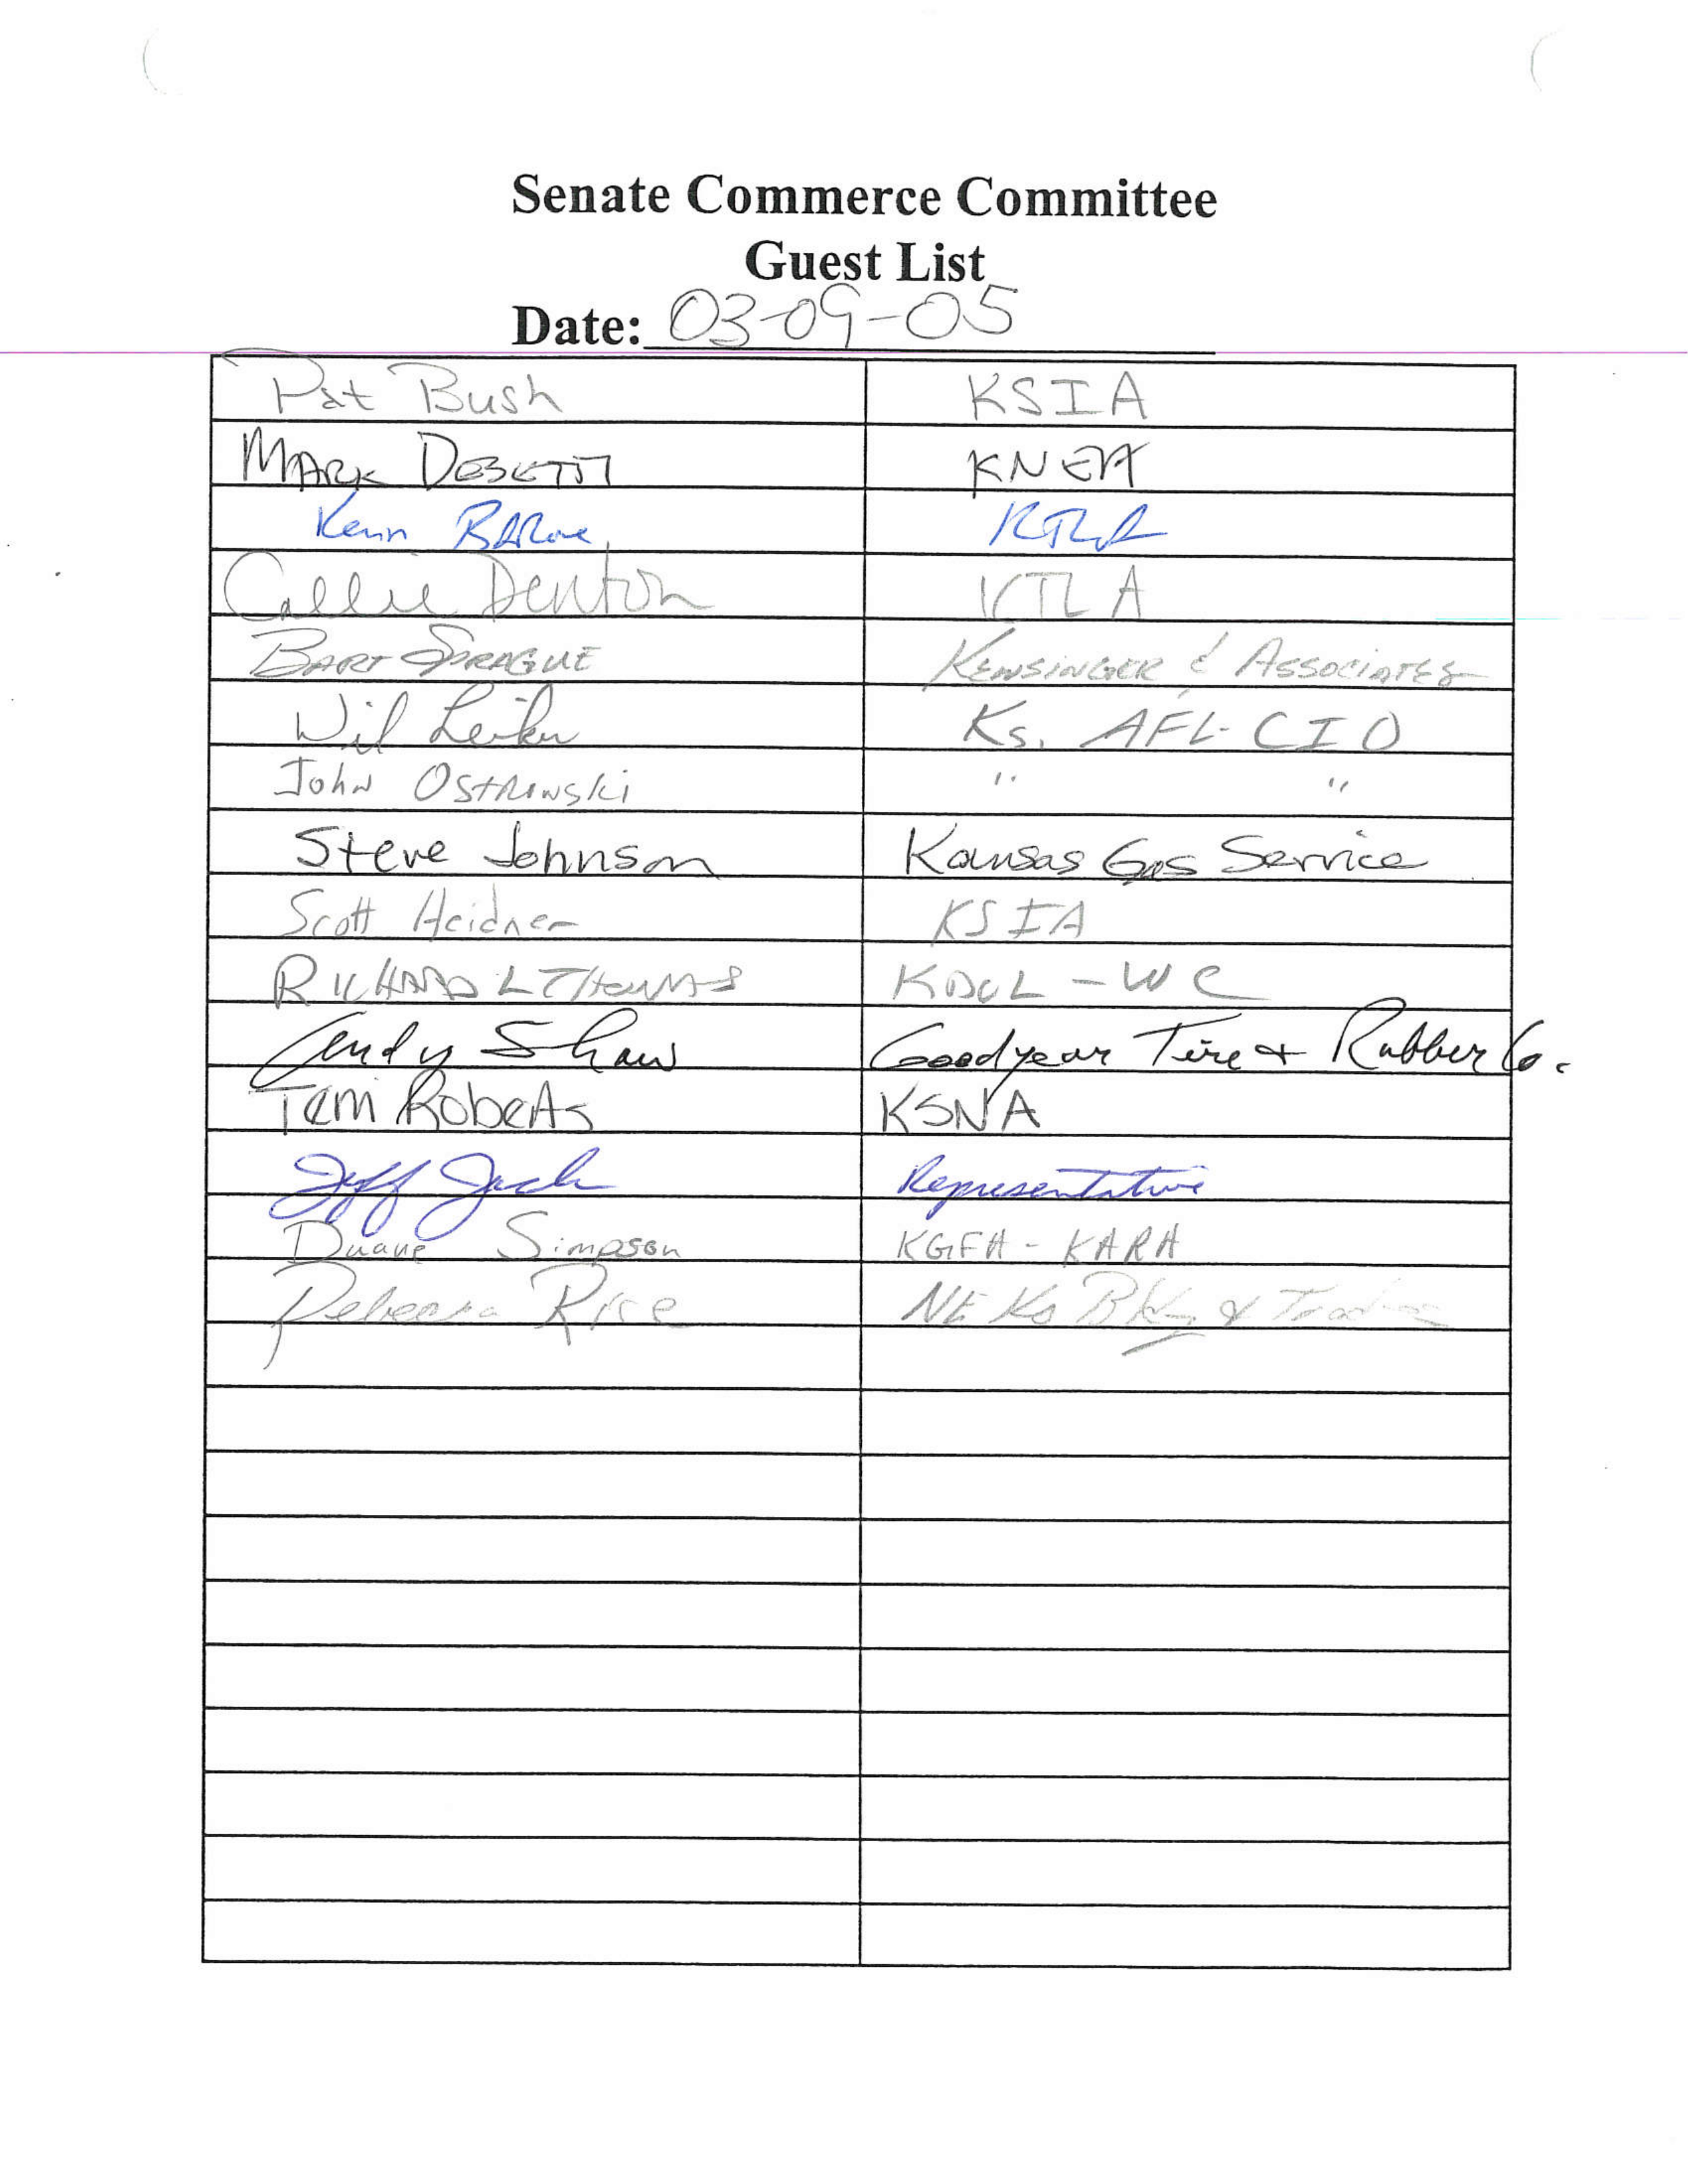 Senate Commerce Committee
Guest List
Date: 03-09-05
Pat Bush KSIA
MARK DESETTI KNEA
Kevin BARone KTLA
Callie Denton KTLA
BART SPRAGUE KENSINGER & ASSOCIATES
Wil Leiker Ks. AFL-CIO
John Ostrowski " "
Steve Johnson Kansas Gas Service
Scott Heidner KSIA
RICHARD L THOMAS KDOL - WC
Andy Shaw Goodyear Tire + Rubber Co.
Terri Roberts KSNA
Jeff Jack Representative
Duane Simpson KGFA - KARA
Rebecca Rice NE Ks &